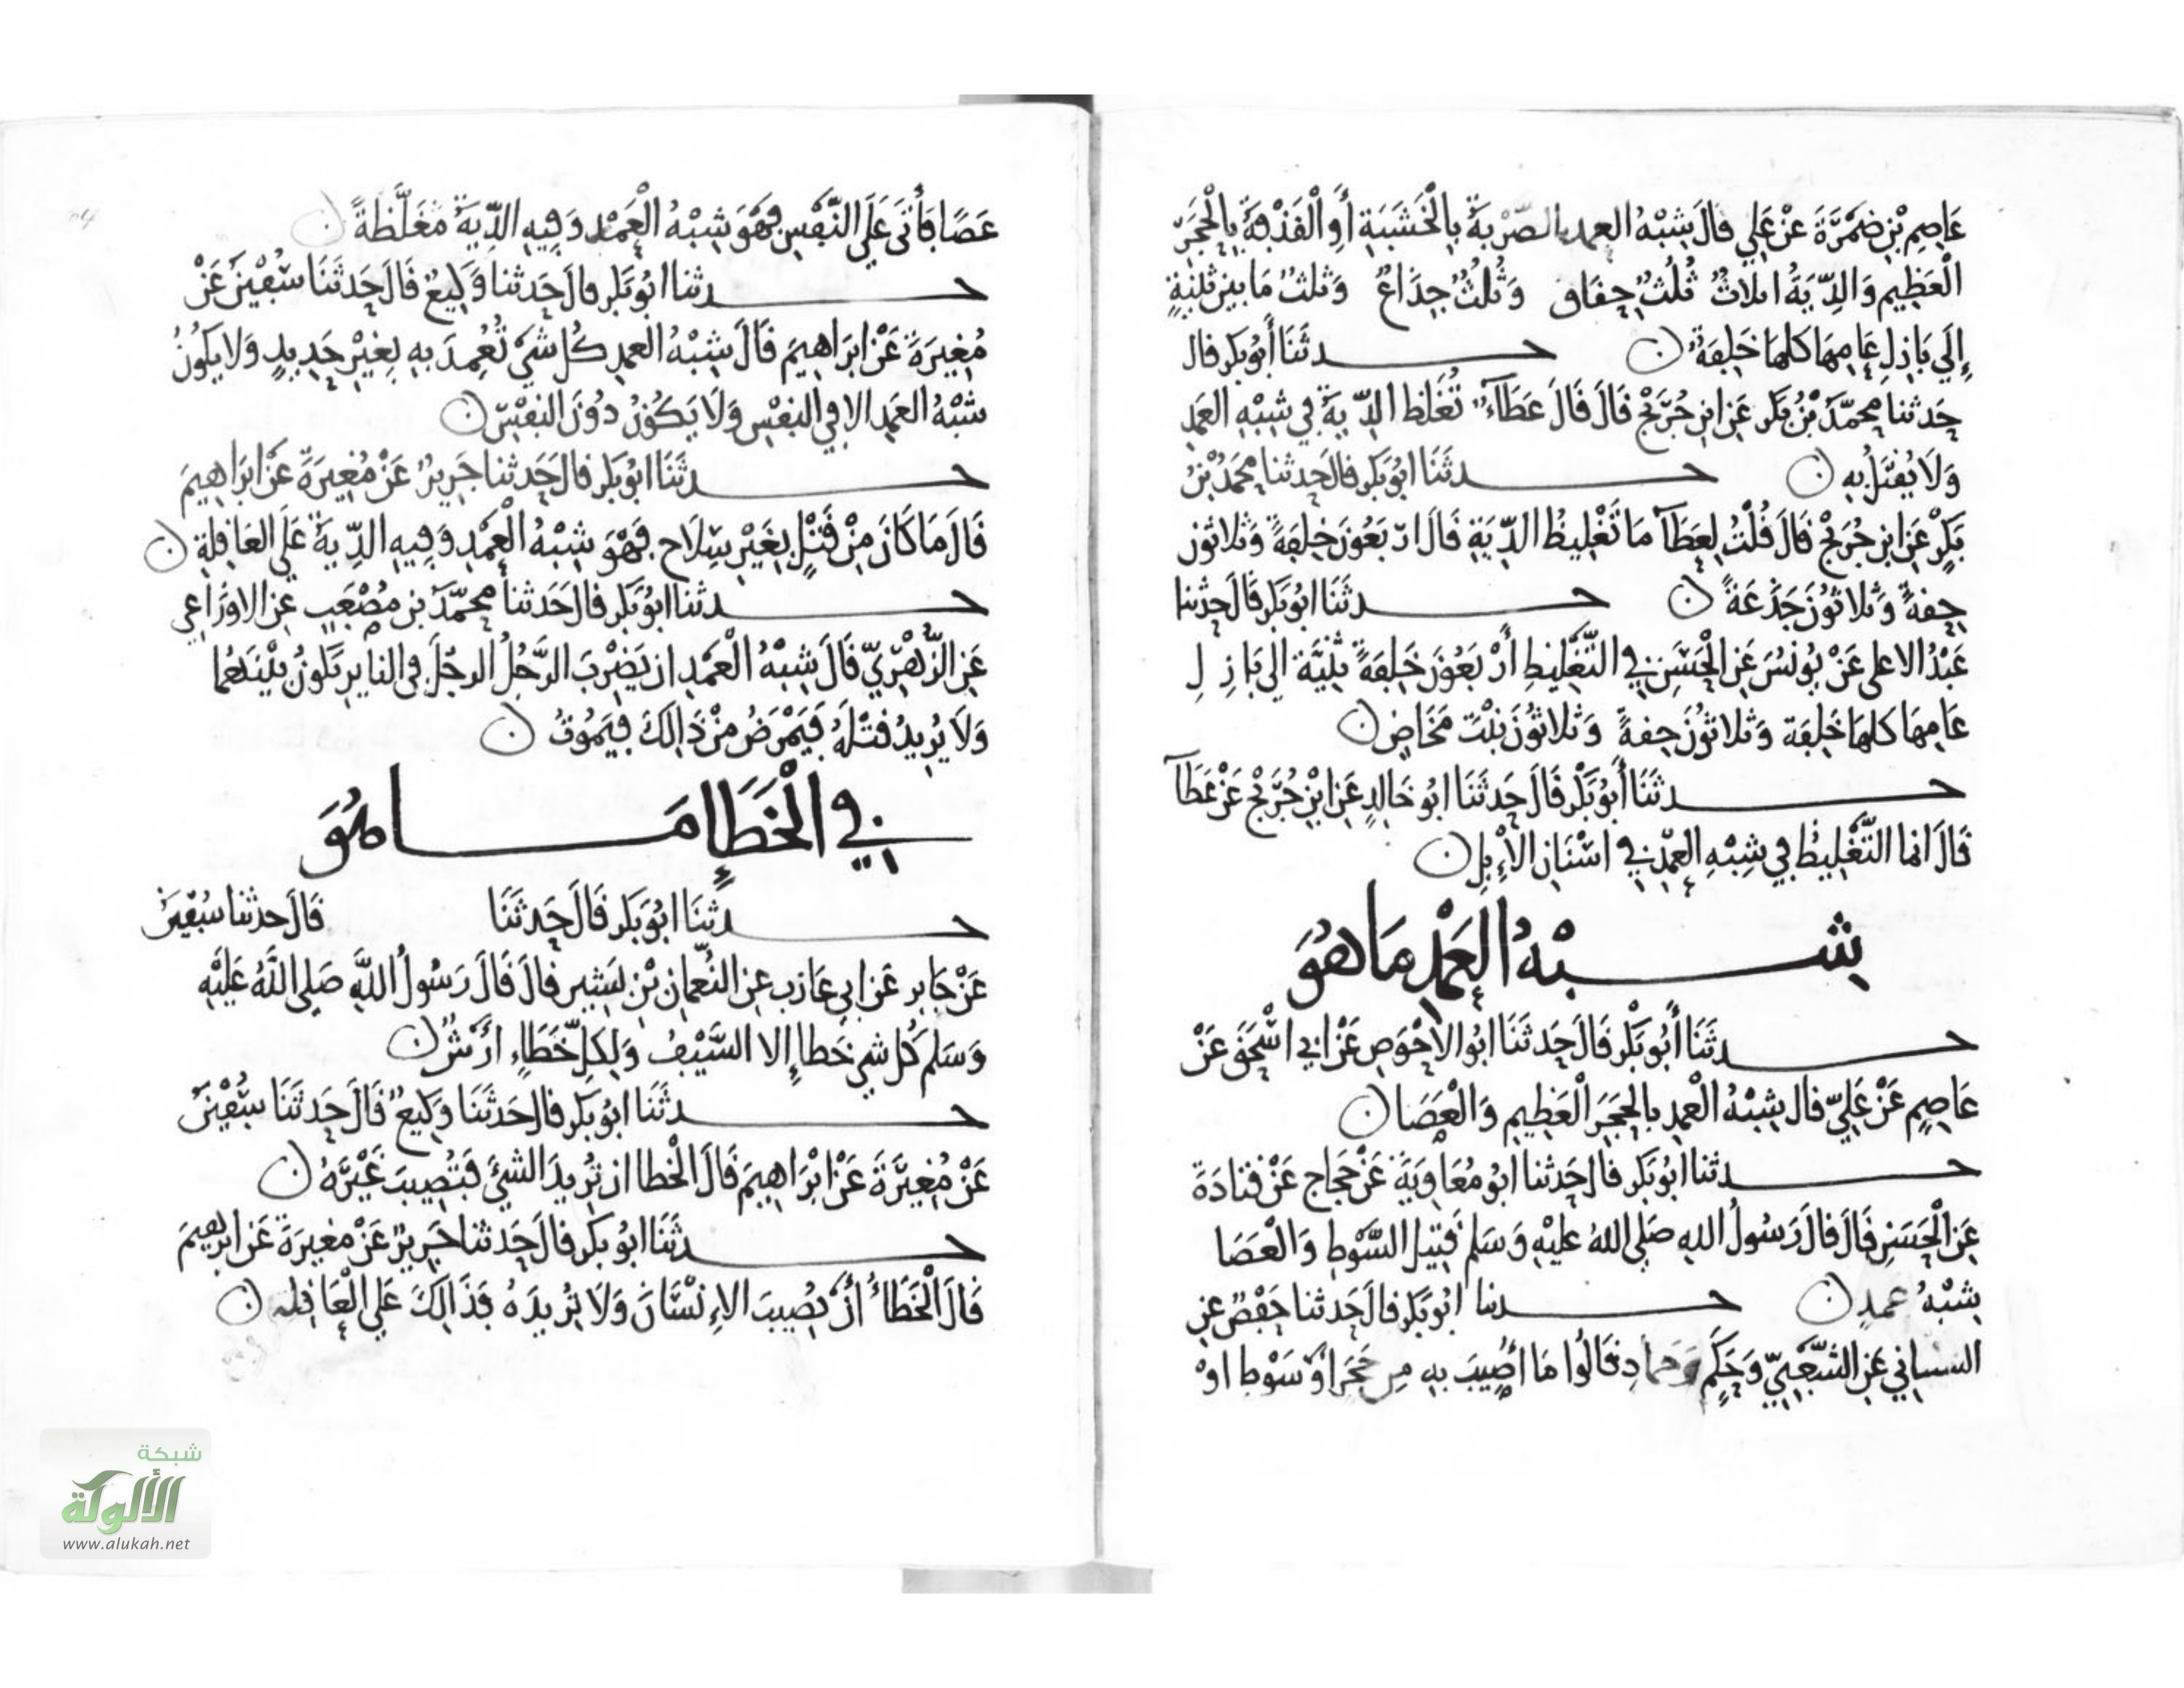 عَاصِمِ بْنِ ضَمْرَةَ عَنْ عَلِي قَالَ شِبْهُ العمد الضَّرْبَةُ بِالْخَشَبَةِ أَوِ الْقَذْفَةُ بِالْحَجَرِ
الْعَظِيمِ وَالدِّيَةُ اثلاثٌ ثُلُثٌ حِقَاق وَثُلُثٌ جِذَاعٌ وَثلثٌ مَا بين ثَنِيَّةٍ
إِلَي بَازِلِ عَامِهَا كلهَا خَلِفَةٌ ن حدثَنَا أَبُو بكر قال
حَدثنا محمّد بْنُ بَكر عَنِ ابنِ جُرَيْجٍ قَالَ قَالَ عَطَآءٌ تُغَلظ الدِّيَةُ فِي شِبْهِ العَمدِ
وَلَا يُقتَلُ بِهِ ن حدثَنَا ابُو بَكر قالَ حَدثنا محَمدُ بْنُ
بَكْرٍ عَنِ ابنِ جُرَيْجٍ قَالَ قُلْتُ لِعَطَآ مَا تَغْلِيظُ الدِّيَةِ قَالَ ارْبَعُونَ خَلِفَةً وَثلَاثون
حِقةً وَثلَاثُونَ جَذَعَةً ن حدثَنَا ابُو بَكر قَالَ حدثنا
عَبْدُ الاعلي عَنْ يُونُسَ عَنِ الْحَسَنِ فِي التَّغْلِيظِ أَرْبَعُونَ خَلِفَةً ثَنِيَّة الي بَازِلِ
عَامِهَا كلهَا خَلِفَة وَثلاثُونَ حِقةً وَثلاثُونَ بنْتَ مَخَاضٍ ن
حدثَنَا أَبُو بَكْر قَالَ حَدثَنَا ابُو خَالِدٍ عَنِ ابْنِ جُرَيْجٍ عَنْ عَطَآ
قَالَ انما التَّغْلِيظُ فِي شِبْهِ العَمْدِ فِي اسْنَانِ الْإِبِلِ ن
شبْهُ العَمْدِ مَا هُوَ
حدثَنَا أَبُو بَكْر قَالَ حَدثَنَا ابُو الاحْوَصِ عَنْ ابي اسْحَقَ عَنْ
عَاصِمٍ عَنْ عَلِيّ قال شِبْهُ الْعَمدِ بالحَجَرِ الْعَظِيمِ وَالْعَصَا ن
حدثنا ابُو بَكر قالَ حَدثنا ابُو مُعَاوِيَةَ عَنْ حَجاج عَنْ قتادَةَ
عَنِ الْحَسَنِ قَالَ قالَ رَسُولُ اللهِ صَلي اللهُ عليْهِ وَسَلم قَتِيل السَّوْطِ وَالْعَصَا
شِبْهُ عمدٍ ن حدثنا ابُو بَكر قالَ حَدثنا حَفْصٌ عَنِ
الشيباني عَنِ الشَّعْبِيّ وَحَكَمٍ وَحمادٍ قَالُوا مَا أُصِيبَ بِهِ مِن حَجَرٍ أوْ سَوْطٍ اوْ
عَصًا فَأَتَي عَلَي النَّفْسِ فَهْوَ شِبْهُ الْعَمْدِ وَفِيهِ الدِّيَةُ مُغَلَّظَةً ن
حدثنا ابُو بَكر قالَ حَدثنا وَكِيعٌ قَالَ حَدثَنَا سُفْيٰنُ عَنْ
مُغِيرَةَ عَنْ ابرَاهِيمَ قَالَ شِبْهُ العمدِ كُل شَيْ تُعُمِدَ بِهِ بِغَيْرِ حَدِيدٍ وَلا يَكُونُ
شبْهُ العَمدِ الا في النفْسِ وَلَا يَكُونُ دُونَ النفْسِ ن
حدثَنَا ابُو بَكر قالَ حَدثنا جَرِيرٌ عَنْ مُغِيرَةَ عَنْ ابرَاهِيمَ
قَالَ مَا كَانَ مِنْ قَتْلٍ بِغَيْرِ سِلَاحٍ فَهْوَ شِبْهُ الْعَمْدِ وَفِيهِ الدِّيَةُ عَلَي العَاقِلَةِ ن
حدثنا ابُو بَكر قال حَدثنا محمّد بن مُصْعَبٍ عن الاوزَاعي
عَنِ الزُّهْرِيِّ قَالَ شِبْهُ الْعَمْدِ ان يَضْرِبَ الرَّجُلُ الرجُلَ في النايرِ تَكُونُ بَيْنَهُمَا
وَلَا يُرِيدُ قتْلَهُ فَيَمْرَضُ مِنْ ذَالِكَ فَيَمُوتُ ن
فِي الْخَطَإِ مَا هُوَ
حدثَنَا ابُو بَكر قَالَ حَدثَنَا قَالَ حدثنا سُفْيٰنُ
عَنْ جَابِر عَنْ ابِي عَازب عن النُّعمَانِ بْنِ بَشِيرٍ قالَ قَالَ رَسُولُ اللَّهِ صَلي اللَّهُ عَلَيْهِ
وَسَلم كُل شي خَطا إِلا السَّيْف وَلِكل خَطَاءٍ أَرْشٌ ن
حدثَنَا ابُو بَكر قال حَدثَنَا وَكِيعٌ قَالَ حَدثَنَا سُفْيٰنُ
عَنْ مُغِيرَةَ عَنْ ابْرَاهِيمَ قَالَ الْخطا ان تُرِيدَ الشيْ فَتُصِيبَ غَيْرَهُ ن
حدثَنَا ابُو بكر قالَ حَدثنا جَرِيرٌ عَنْ مغيرَةَ عَن ابرهِيمَ
قالَ الْخَطَاءُ أَنْ يُصِيبَ الإِنْسَانَ وَلَا يُرِيدَهُ فَذَالِكَ عَلَي الْعَاقِلَه ن
شبكة
الألوكة
www.alukah.net